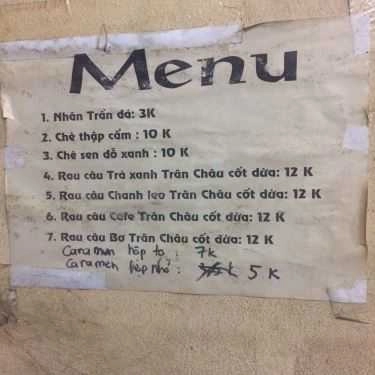 Menu
1. Nhân Trần đá: 3K
2. Chè thập cẩm : 10 K
3. Chè sen đỗ xanh : 10 K
4. Rau câu Trà xanh Trân Châu cốt dừa: 12 K
5. Rau câu Chanh leo Trân Châu cốt dừa: 12 K
6. Rau câu Cafe Trân Châu cốt dừa: 12 K
7. Rau câu Bơ Trân Châu cốt dừa: 12 K
Caramen hộp to : 7k
Caramen hộp nhỏ : 5 K